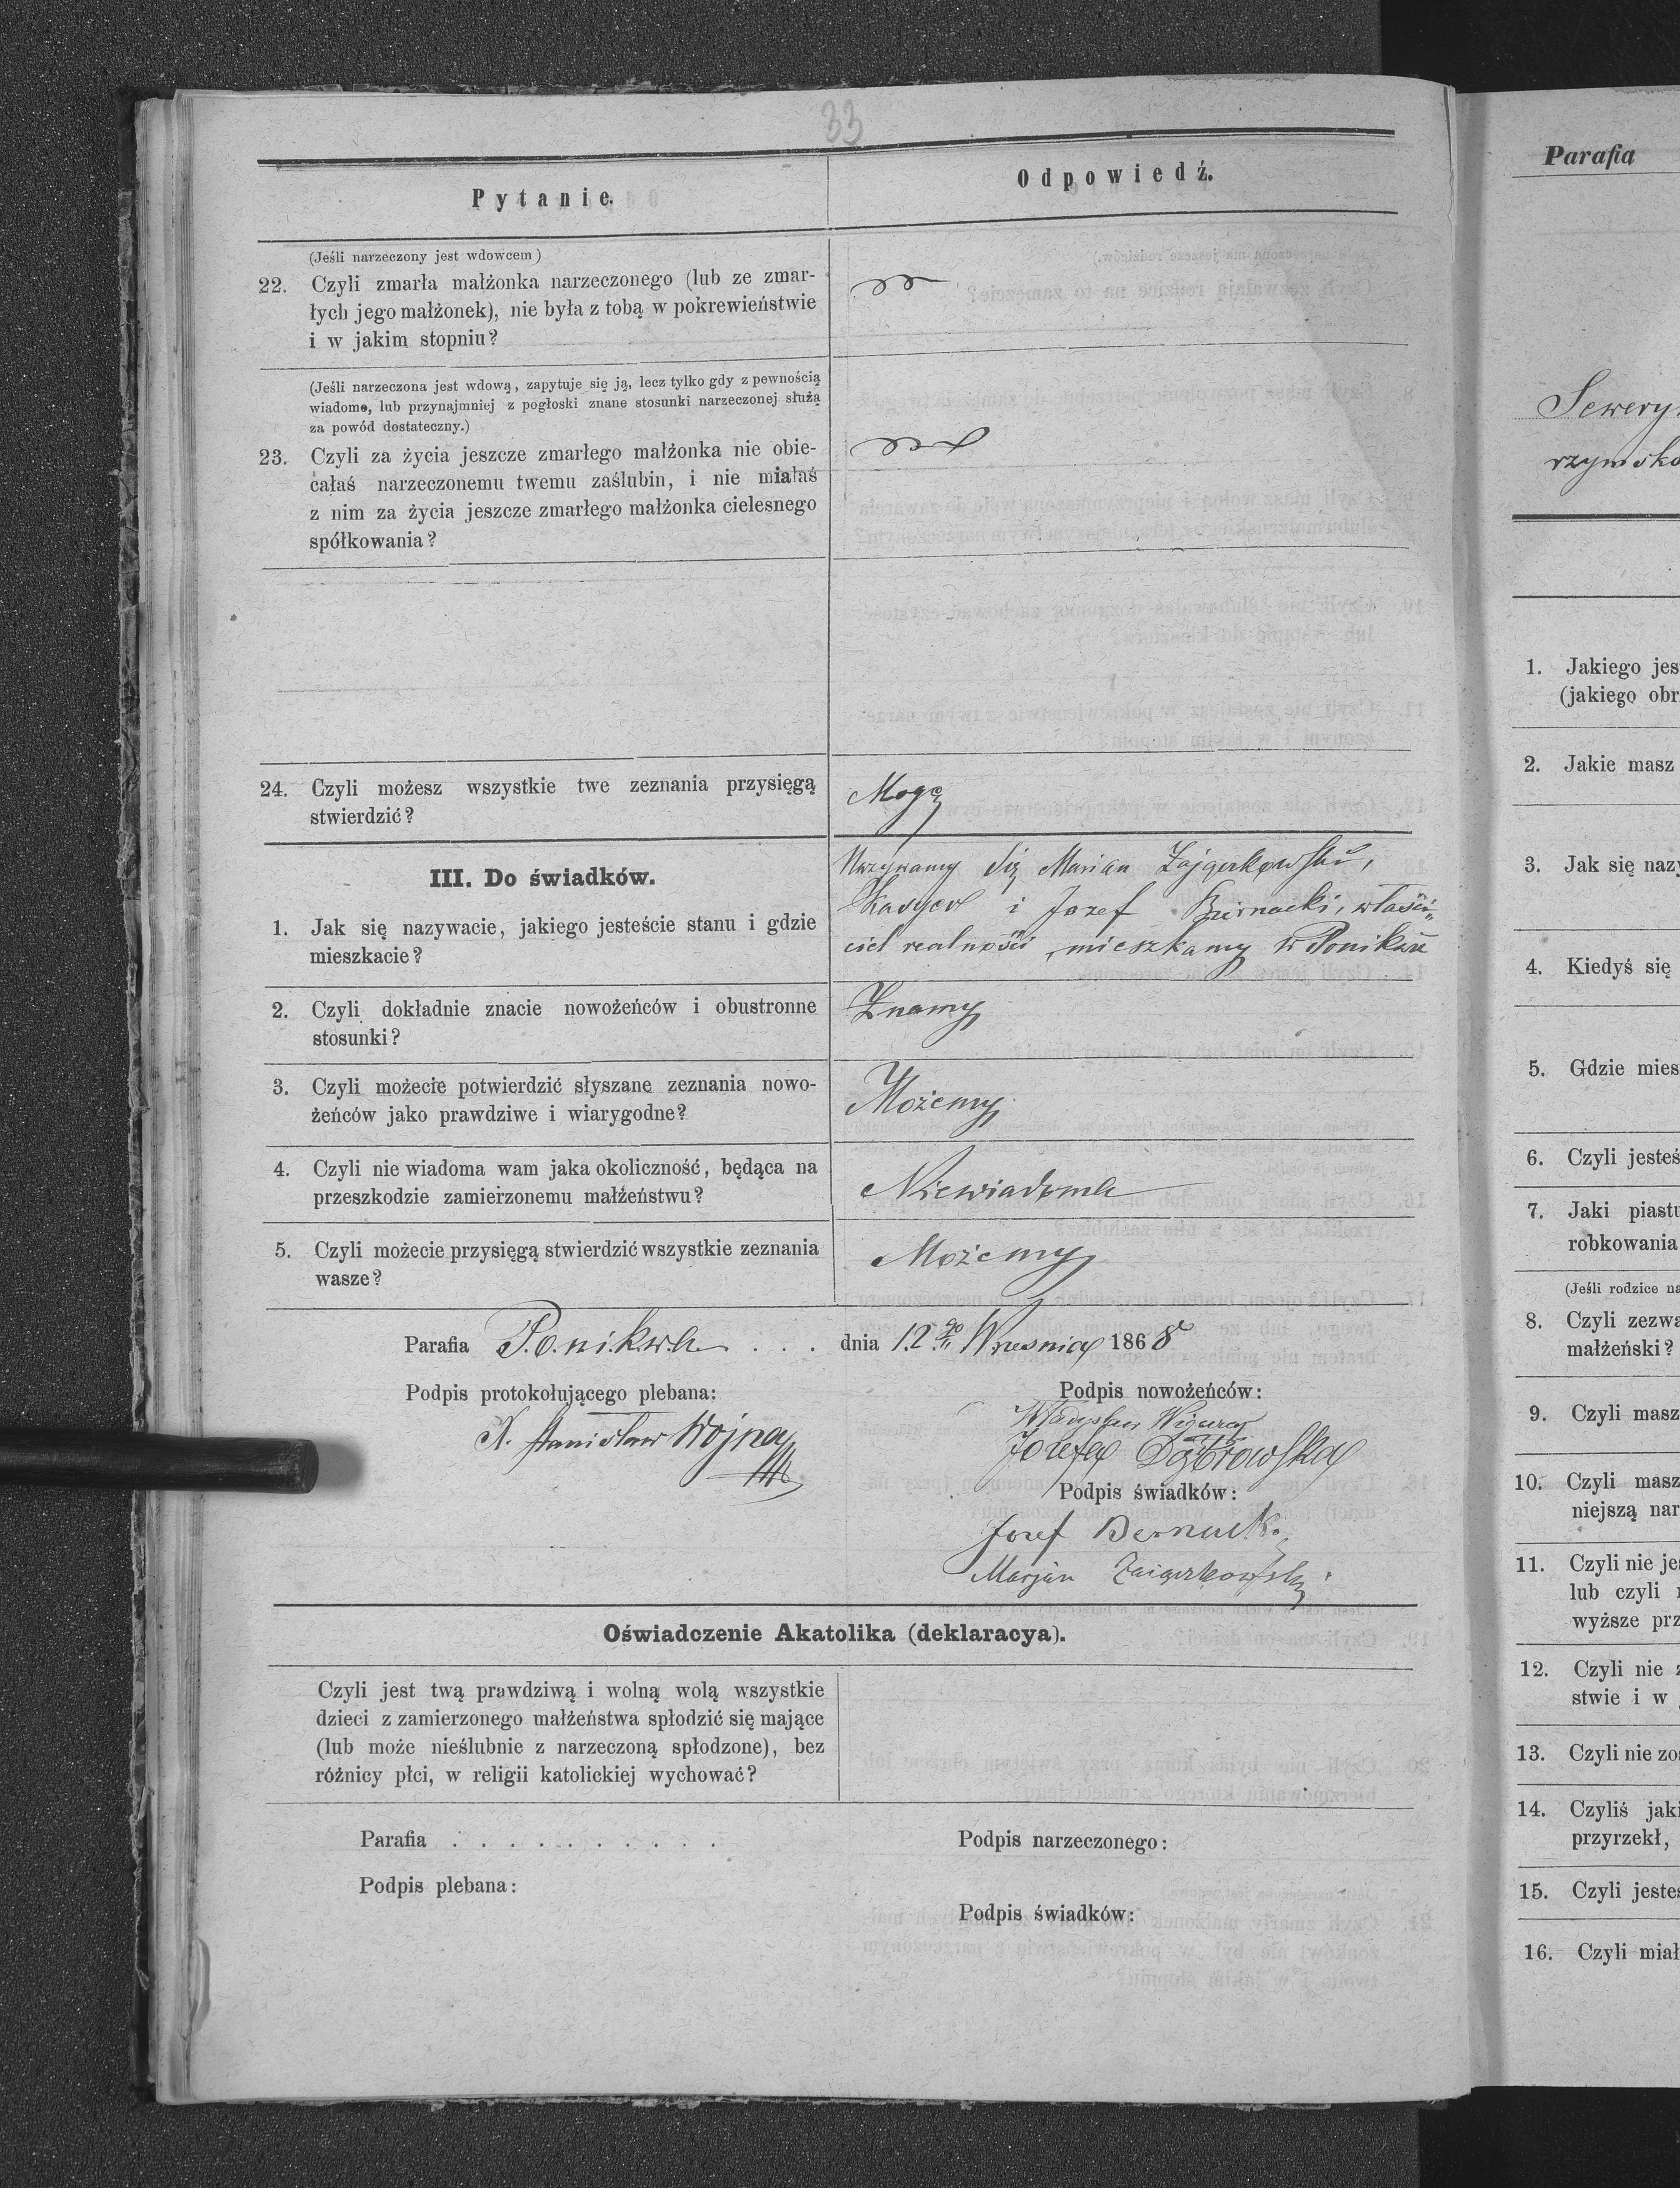 33
Pytanie.
Odpowiedź.
(Jeśli narzeczony jest wdowcem)
22. Czyli zmarła małżonka narzeczonego (lub ze zmar-
łych jego małżonek), nie była z tobą w pokrewieństwie
i w jakim stopniu?
(Jeśli narzeczona jest wdową, zapytuje się ją, lecz tylko gdy z pewnością
wiadome, lub przynajmniej z pogłoski znane stosunki narzeczonej służą
za powód dostateczny.)
23. Czyli za życia jeszcze zmarłego małżonka nie obie-
całaś narzeczonemu twemu zaślubin, i nie miałaś
z nim za życia jeszcze zmarłego małżonka cielesnego
spółkowania?
24. Czyli możesz wszystkie twe zeznania przysięgą
stwierdzić?
Mogę
III. Do świadków.
1. Jak się nazywacie, jakiego jesteście stanu i gdzie
mieszkacie?
Nazywamy się Marian
i Jozef właści„
ciel realności, mieszkamy w Ponikwie
2. Czyli dokładnie znacie nowożeńców i obustronne
stosunki?
Znamy
3. Czyli możecie potwierdzić słyszane zeznania nowo-
żeńców jako prawdziwe i wiarygodne?
Możemy
4. Czyli nie wiadoma wam jaka okoliczność, będąca na
przeszkodzie zamierzonemu małżeństwu?
Niewiadoma
5. Czyli możecie przysięgą stwierdzić wszystkie zeznania
wasze?
Możemy
Parafia Ponikwa . . . dnia 12go Wresnia 1868
Podpis protokołującego plebana:
X. Stanisław Wojna
Podpis nowożeńców:
Władysław Wigura
Józefa Dąbrowska
Podpis świadków:
Jozef
Marjan
Oświadczenie Akatolika (deklaracya).
Czyli jest twą prawdziwą i wolną wolą wszystkie
dzieci z zamierzonego małżeństwa spłodzić się mające
(lub może nieślubnie z narzeczoną spłodzone), bez
różnicy płci, w religii katolickiej wychować?
Parafia . . . . . . . . . .
Podpis narzeczonego:
Podpis plebana:
Podpis świadków:
Parafia
Sewery
rzymsko
1. Jakiego jes
(jakiego obr
2. Jakie masz
3. Jak się nazy
4. Kiedyś się
5. Gdzie mies
6. Czyli jesteś
7. Jaki piastu
robkowania
(Jeśli rodzice na
8. Czyli zezwa
małżeński?
9. Czyli masz
10. Czyli masz
niejszą nar
11. Czyli nie je
lub czyli
wyższe prz
12. Czyli nie z
stwie i w
13. Czyli nie zo
14. Czyliś jaki
przyrzekł,
15. Czyli jeste
16. Czyli miał